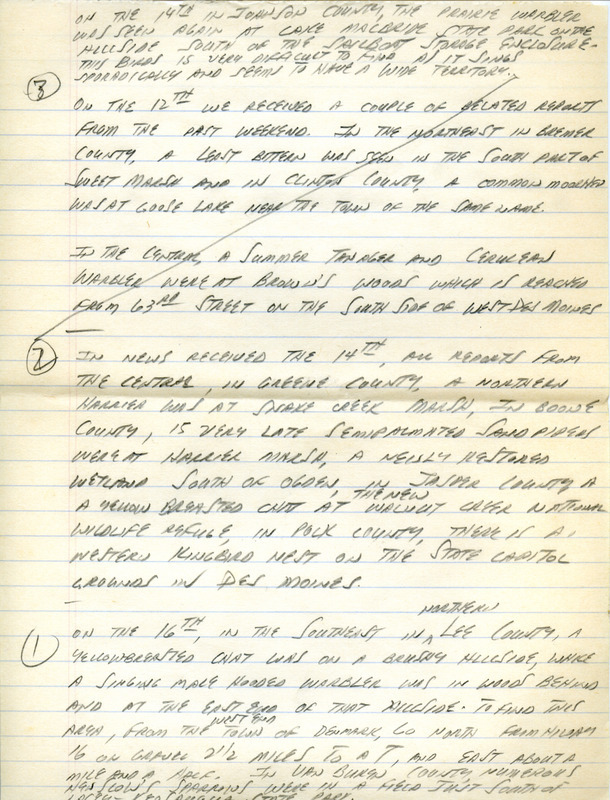 ON THE 14TH IN JOHNSON COUNTY, THE PRAIRIE WARBLER
WAS SEEN AGAIN AT LAKE MACBRIDE STATE PARK ON THE
HILLSIDE SOUTH OF THE SAILBOAT STORAGE ENCLOSURE.
THIS BIRDS IS VERY DIFFICULT TO FIND AS IT SINGS
SPORADICALLY AND SEEMS TO HAVE A WIDE TERRITORY.
3
ON THE 12TH WE RECEIVED A COUPLE OF BELATED REPORTS
FROM THE PAST WEEKEND. IN THE NORTHEAST IN BREMER
COUNTY, A LEAST BITTERN WAS SEEN IN THE SOUTH PART OF
SWEET MARSH AND IN CLINTON COUNTY, A COMMON MOORHEN
WAS AT GOOSE LAKE NEAR THE TOWN OF THE SAME NAME.
IN THE CENTRAL, A SUMMER TANAGER AND CERULEAN
WARBLER WERE AT BROWN'S WOODS WHICH IS REACHED
FROM 63RD STREET ON THE SOUTH SIDE OF WEST DES MOINES
2
IN NEWS RECEIVED THE 14TH, ALL REPORTS FROM
THE CENTRAL, IN GREENE COUNTY, A NORTHERN
HARRIER WAS AT SNAKE CREEK MARSH, IN BOONE
COUNTY, 15 VERY LATE SEMIPALMATED SANDPIPERS
WERE AT HARRIER MARSH, A NEWLY RESTORED
WETLAND SOUTH OF OGDEN, IN JASPER COUNTY A
THE NEW
A YELLOW BREASTED CHAT AT WALNUT CREEK NATIONAL
WILDLIFE REFUGE, IN POLK COUNTY, THERE IS A
WESTERN KINGBIRD NEST ON THE STATE CAPITOL
GROUNDS IN DES MOINES.
NORTHERN
1
ON THE 16TH, IN THE SOUTHEAST IN LEE COUNTY, A
YELLOWBREASTED CHAT WAS ON A BRUSHY HILLSIDE, WHILE
A SINGING MALE HOODED WARBLER WAS IN WOODS BEHIND
AND AT THE EAST END OF THAT HILLSIDE. TO FIND THIS
WEST END
AREA, FROM THE TOWN OF DENMARK, GO NORTH FROM HIGHWAY
16 ON GRAVEL 2 1/2 MILES TO A T, AND EAST ABOUT A
MILE AND A HALF. IN VAN BUREN COUNTY, NUMEROUS
HENSLOW'S SPARROWS WERE IN A FIELD JUST SOUTH OF
LACEY-KEOSAUQUA STATE PARK.